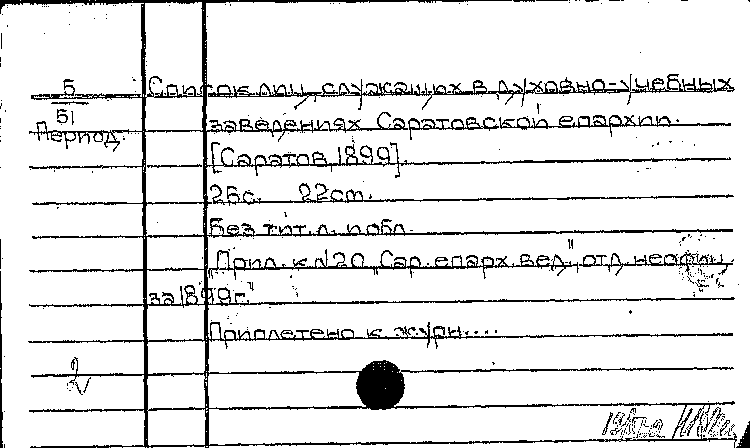 5
51
Период.
Список лиц, служащих в духовно-учебных
заведениях Саратовской епархии.
[Саратов, 1899].
26с. 22см.
Без тит. л. и обл.
"Прил. к №20 "Сар. епарх. вед.", отд. неофиц.
за 1899г."
Приплетено к журн....
2